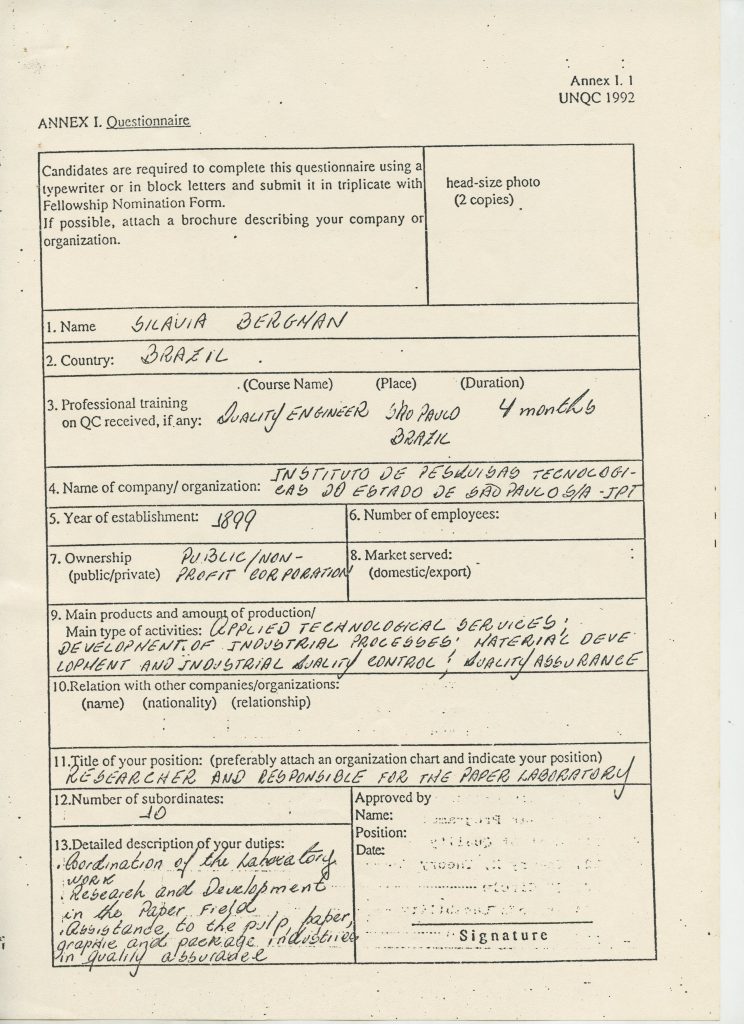 Annex I. 1
UNQC 1992
ANNEX I. Questionnaire
Candidates are required to complete this questionnaire using a
typewriter or in block letters and submit it in triplicate with
Fellowship Nomination Form.
If possible, attach a brochure describing your company or
organization.
head-size photo
(2 copies)
1. Name SILAVIA BERGMAN
2. Country: BRAZIL .
(Course Name) (Place) (Duration)
3. Professional training
on QC received, if any: QUALITY ENGINEER SÃO PAULO 4 months
BRAZIL
INSTITUTO DE PESQUISAS TECNOLOGI-
4. Name of company/ organization: CAS DO ESTADO DE SÃO PAULO S/A - IPT
5. Year of establishment: 1899
6. Number of employees:
7. Ownership PUBLIC/NON-
(public/private) PROFIT CORPORATION
8. Market served:
(domestic/export)
9. Main products and amount of production/
Main type of activities: APPLIED TECHNOLOGICAL SERVICES;
DEVELOPMENT OF INDUSTRIAL PROCESSES; MATERIAL DEVE
LOPMENT AND INDUSTRIAL QUALITY CONTROL; QUALITY ASSURANCE
10.Relation with other companies/organizations:
(name) (nationality) (relationship)
11.Title of your position: (preferably attach an organization chart and indicate your position)
RESEARCHER AND RESPONSIBLE FOR THE PAPER LABORATORY
12.Number of subordinates:
10
13.Detailed description of your duties:
. Coordination of the Laboratory
work
. Research and Development
in the Paper Field
. Assistance to the pulp, paper,
graphic and package industries
in quality assuradel
Approved by
Name:
Position:
Date:
Signature